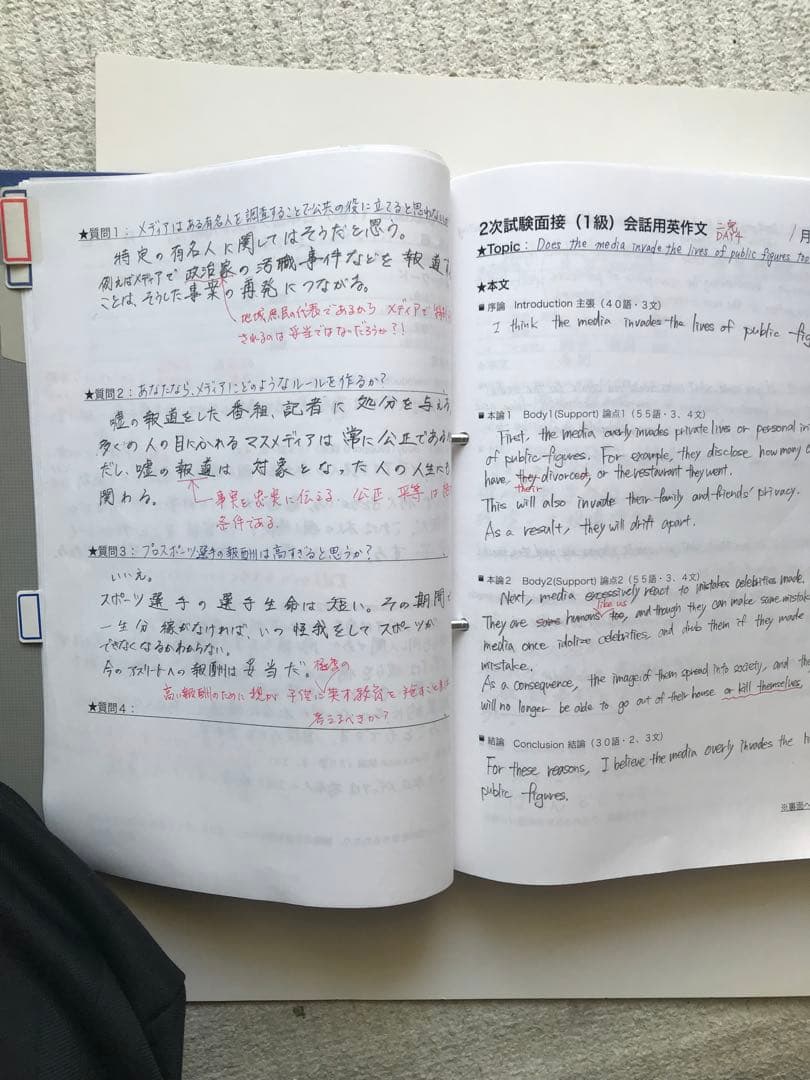 ★質問1：メディアはある有名人を調査することで公共の役に立てると思わないか
特定の有名人に関してはそうだと思う。
例えばメディアで政治家の汚職事件などを報道す
ことは、そうした事案の再発につながる。
地域県民の代表であるから メディアで
されるのは妥当ではないだろうか？！
★質問2：あなたなら、メディアにどのようなルールを作るか？
嘘の報道をした番組、記者に処分を与え
多くの人の目にふれるマスメディアは常に公正であ
だし、嘘の報道は 対象となった人の人生にも
関わる。
事実を忠実に伝える、公正、平等は
条件である。
★質問3：プロスポーツ選手の報酬は高すぎると思うか？
いいえ。
スポーツ選手の選手生命は短い。その期間
一生分稼がなければ、いつ怪我をしてスポーツが
できなくなるかわからない。
今のアスリートへの報酬は妥当だ。極度の
高い報酬のために親が子供に英才教育を
考えるべきか？
★質問4：
2次試験面接（1級）会話用英作文 二宛
DAY4
1月
★Topic：Does the media invade the lives of public figures too
★本文
■序論 Introduction 主張（40語・3文）
I think the media invades the lives of public fig
■本論1 Body1(Support) 論点1（55語・3、4文）
First, the media overly invades private lives or personal in
of public figures. For example, they disclose how many
have they divorced, or the restaurant they went.
their
This will also invade their family and friends' privacy.
As a result, they will drift apart.
■本論2 Body2(Support) 論点2（55語・3、4文）
Next, media excessively react to mistakes celebrities made.
like us
They are same humans too, and though they can make same mistake
media once idolize celebrities, and drub them if they made
mistake.
As a consequence, the image of them spread into society, and the
will no longer be able to go out of their house or kill themselves.
■結論 Conclusion 結論（30語・2、3文）
For these reasons, I believe the media overly invades the
public figures.
※裏面へ